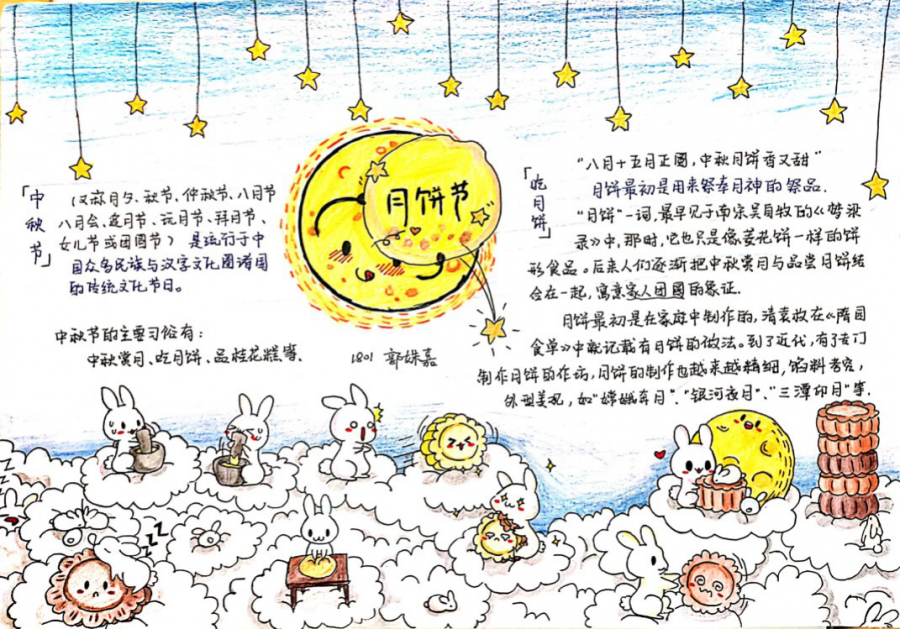 月饼节
「中秋节」
(又称月夕、秋节、仲秋节、八月节
八月会、追月节、玩月节、拜月节、
女儿节或团圆节) 是流行于中
国众多民族与汉字文化圈诸国
的传统文化节日。
中秋节的主要习俗有:
中秋赏月、吃月饼、品桂花糕等、
1801 郭姝嘉
「吃月饼」
“八月十五月正圆,中秋月饼香又甜”
月饼最初是用来祭奉月神的祭品.
“月饼”一词,最早见于南宋吴自牧的《梦梁
录》中,那时,它也只是像菱花饼一样的饼
形食品。后来人们逐渐把中秋赏月与品尝月饼结
合在一起,寓意家人团圆的象征.
月饼最初是在家庭中制作的,清袁枚在《隋园
食单》中就记载有月饼的做法。到了近代,有了专门
制作月饼的作坊,月饼的制作也越来越精细,馅料考究,
外型美观,如“嫦娥奔月”、“银河夜月”、“三潭印月”等.
zzz